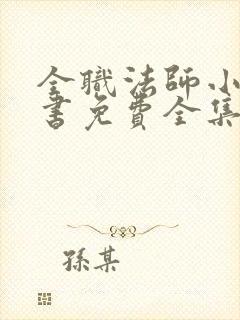 全職法師小
書免費全集
孫某